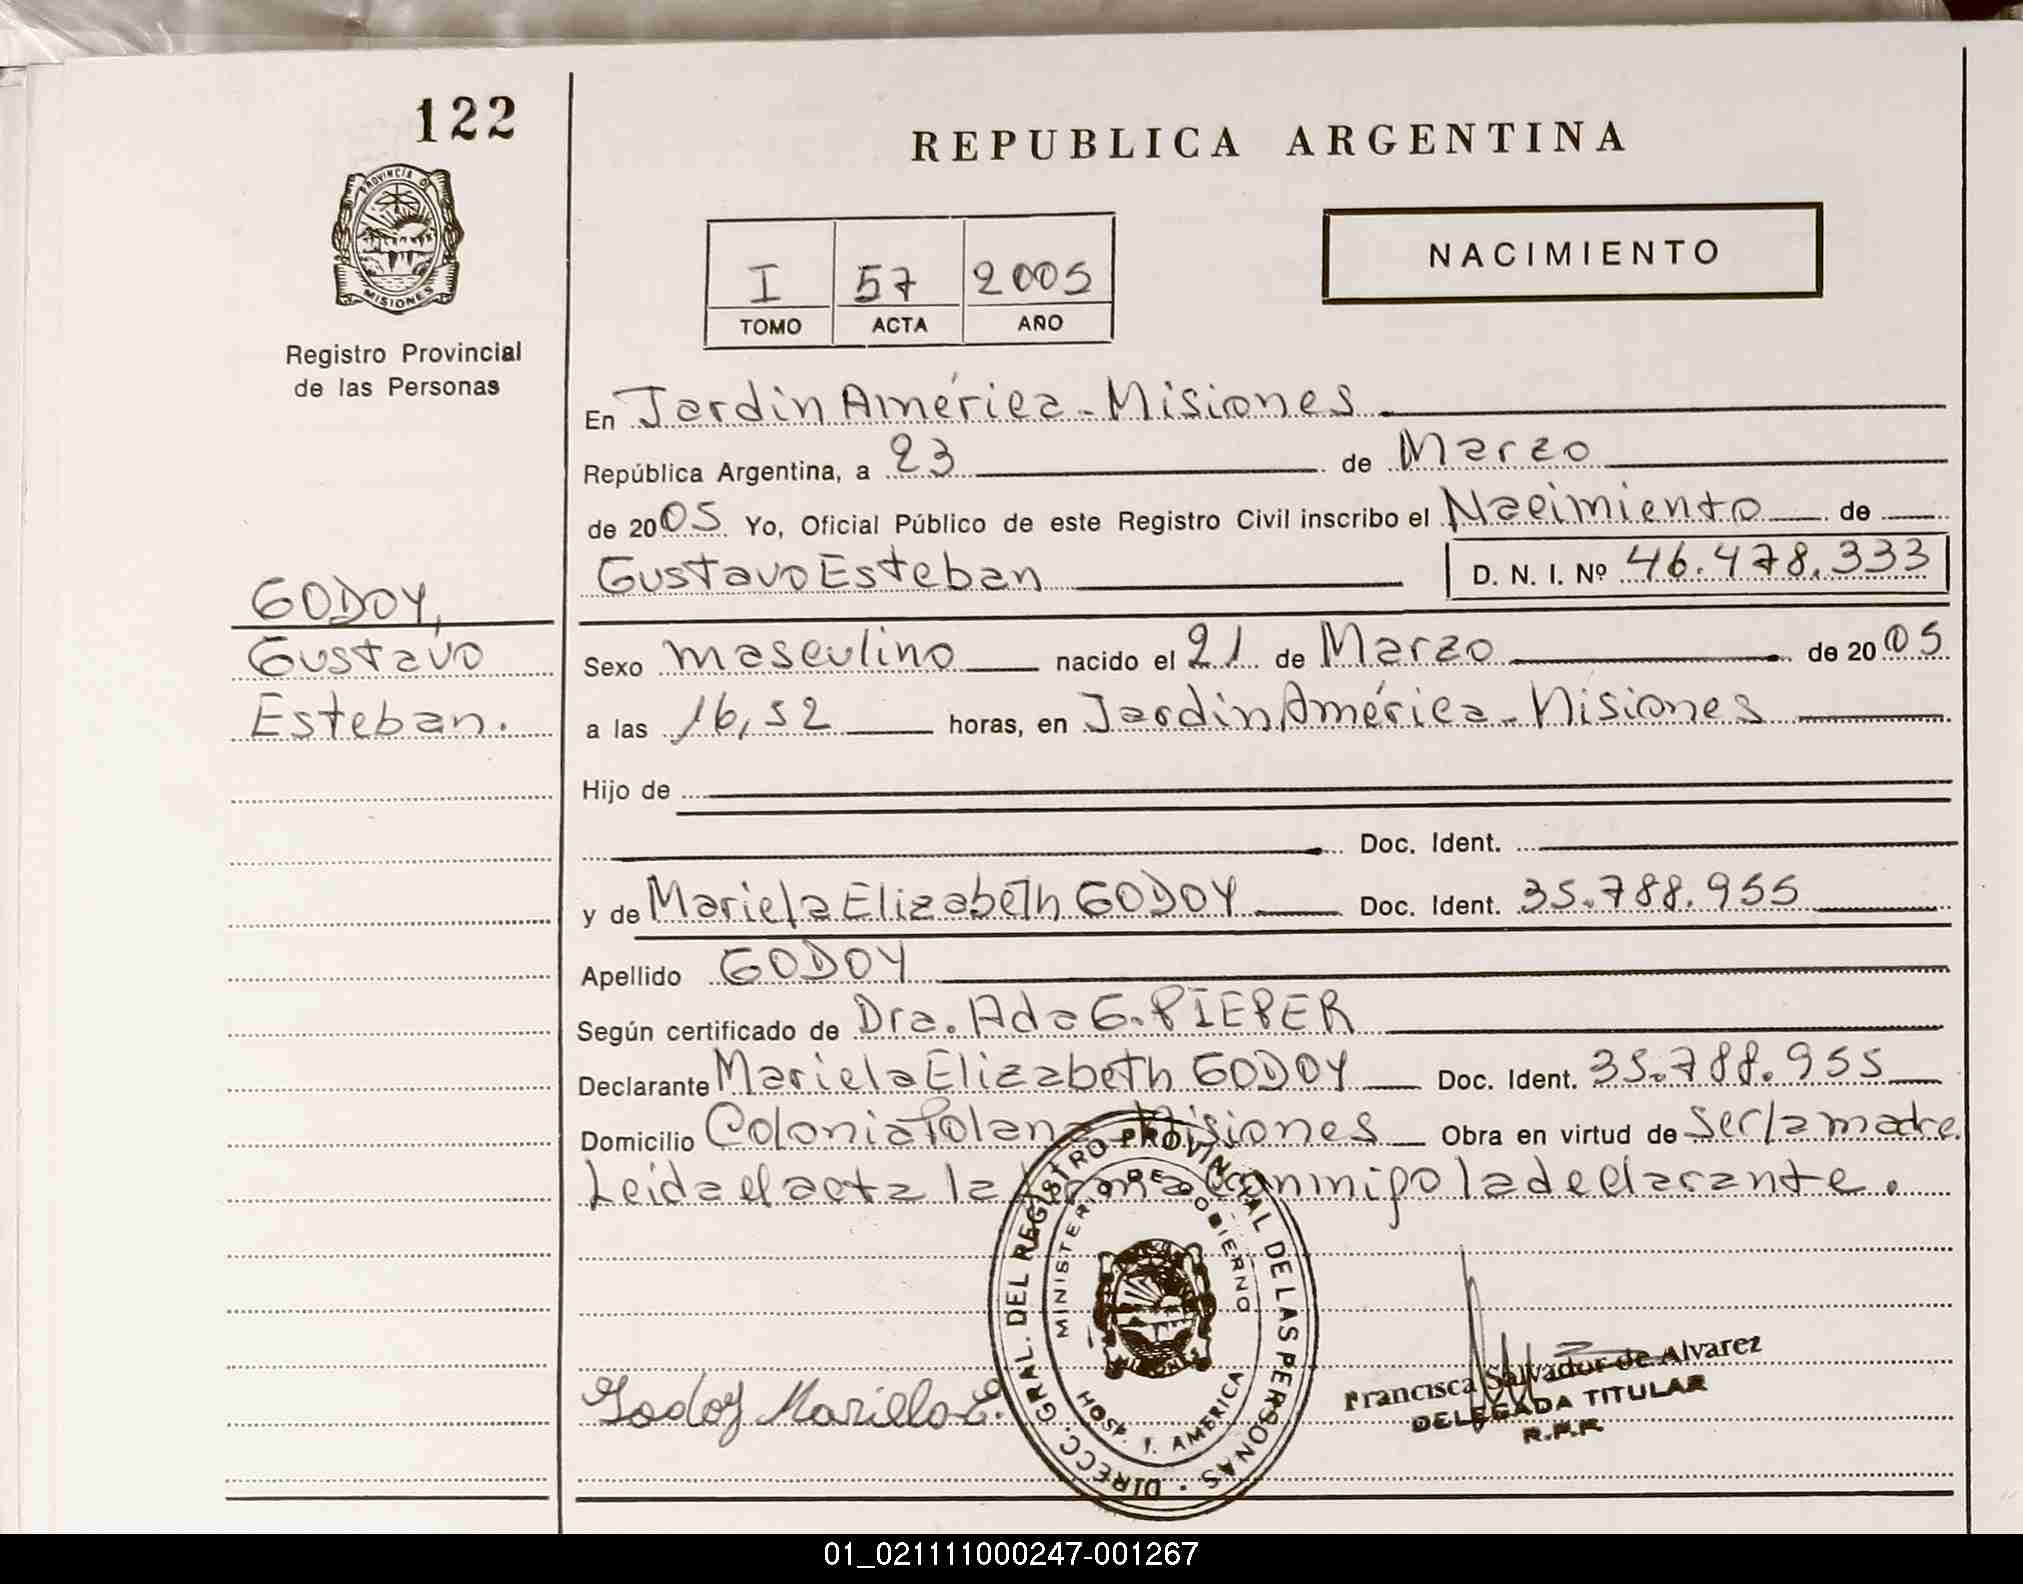 122
PROVINCIA DE
MISIONES
Registro Provincial
de las Personas
REPUBLICA ARGENTINA
I 57 2005
TOMO ACTA AÑO
NACIMIENTO
En Jardin América - Misiones
República Argentina, a 23 de Marzo
de 2005 Yo, Oficial Público de este Registro Civil inscribo el Nacimiento de
Gustavo Esteban D. N. I. Nº 46.478.333
GODOY,
Gustavo
Esteban.
Sexo masculino nacido el 21 de Marzo de 2005
a las 16,52 horas, en Jardin América - Misiones
Hijo de
Doc. Ident.
y de Mariela Elizabeth GODOY Doc. Ident. 35.788.955
Apellido GODOY
Según certificado de Dra. Ada G. PIEPER
Declarante Mariela Elizabeth GODOY Doc. Ident. 35.788.955
Domicilio Colonia Polana Misiones Obra en virtud de ser la madre.
Leida el acta la firma conmigo la declarante.
DIRECC. GRAL. DEL REGISTRO PROVINCIAL DE LAS PERSONAS
MINISTERIO DE GOBIERNO
MISIONES
HOSP. J. AMERICA
Godoy Mariella E.
Francisca Salvador de Alvarez
DELEGADA TITULAR
R.P.P.
01_021111000247-001267